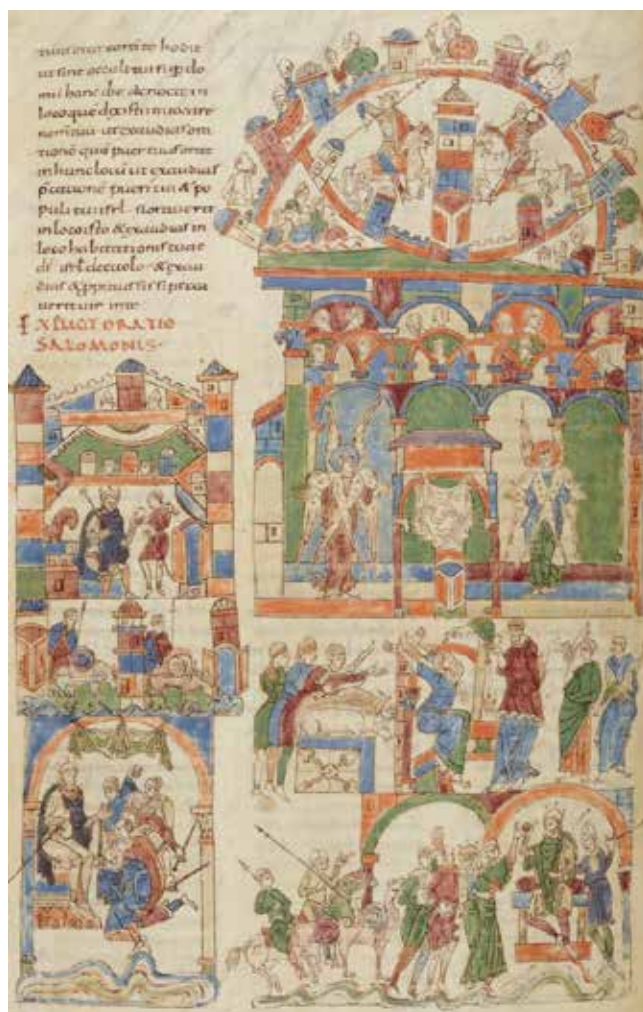 tuus orat hodie
ut sint oculi tui sup do
mu hanc die ac nocte in
loco que
nomen tuu ut exaudias ora
tione qua puer tuus orat
in hunc locu ut exaudias
pueri tui & po
puli tui isrl
in loco isto & exaudias in
loco habitationis tuae
ds isrl de caelo & exau
dias & ppitius sis si pecca
in te
EXPLICIT ORATIO
SALOMONIS·